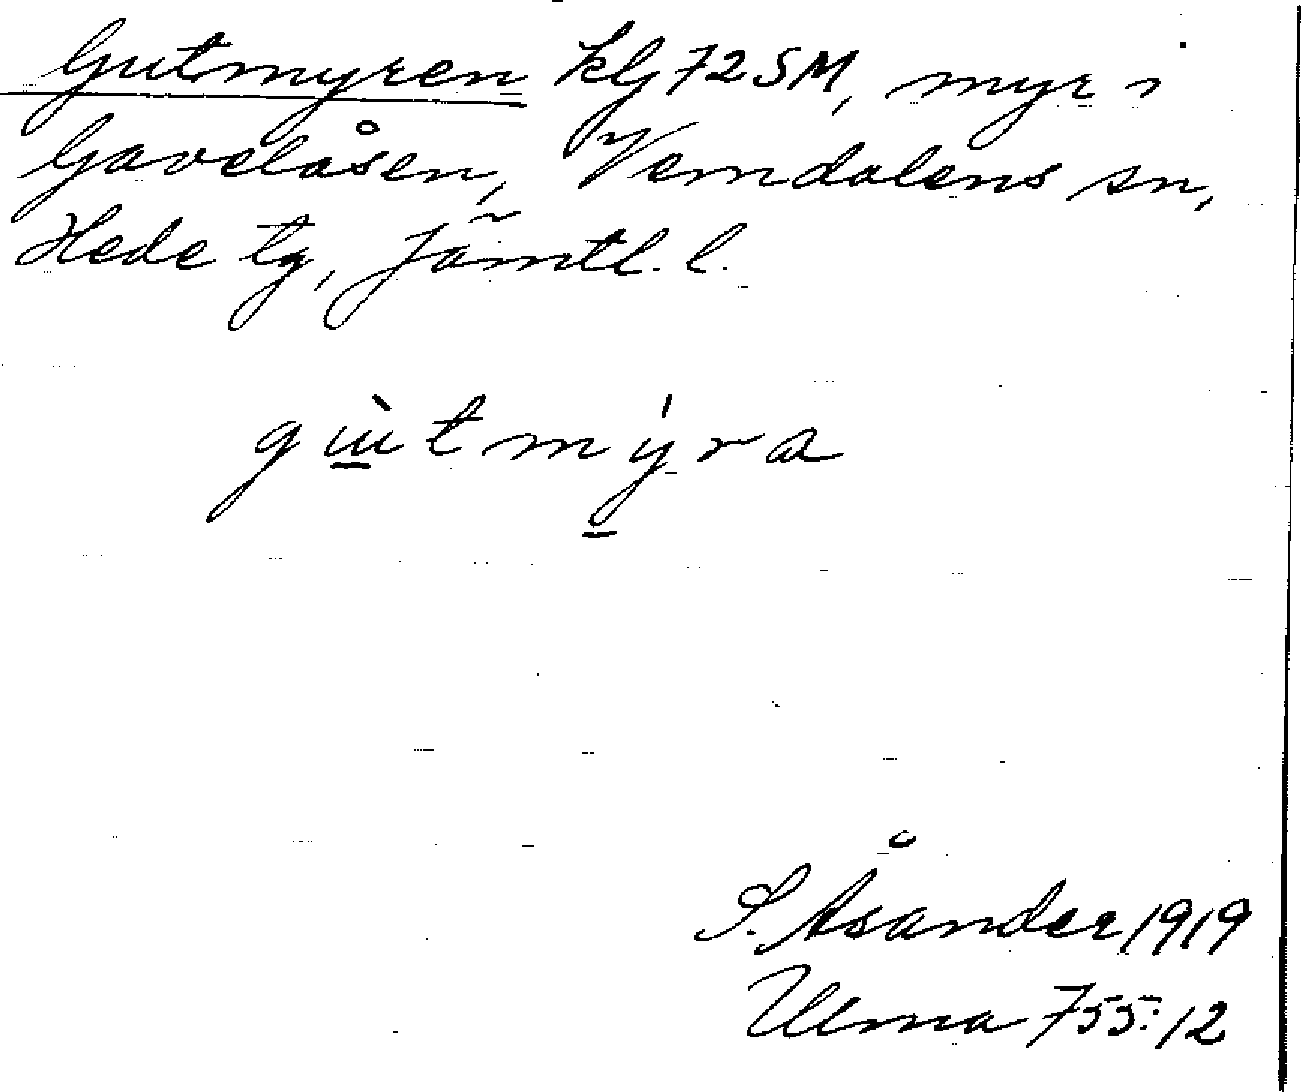 Gutmyren klj 72 SM, myr i
Gavelåsen, Vemdalens sn,
Hede tg, Jämtl. l.
gɯ̀tmýra
S. Åsander 1919
Ulma 755:12